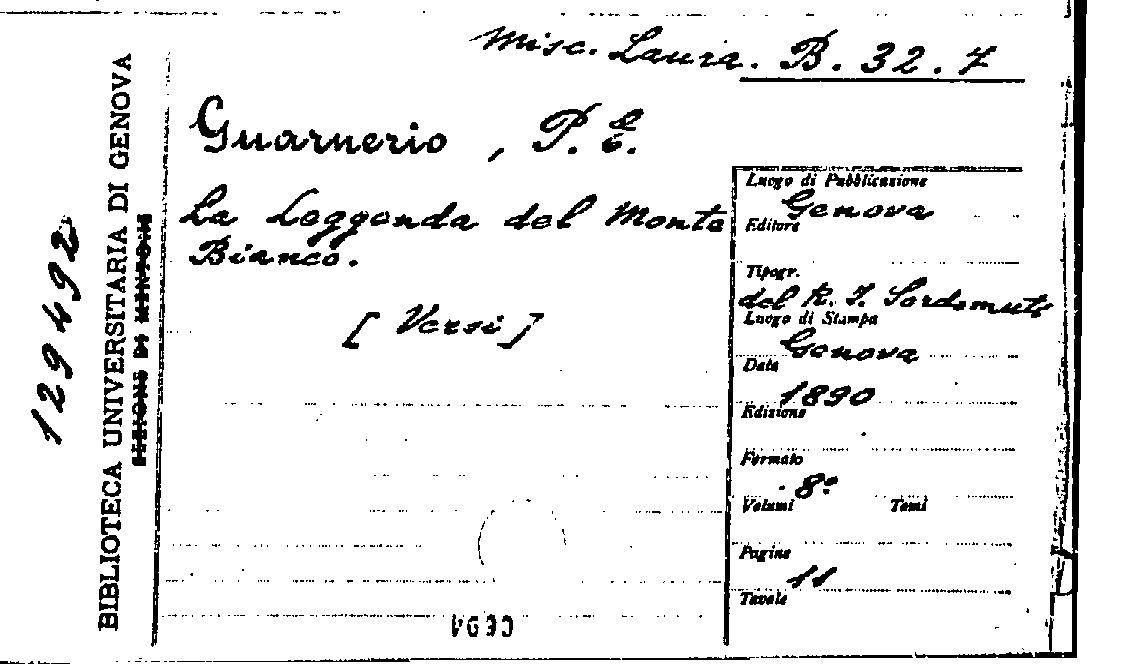 Misc. Laura. B. 32. 7
Guarnerio, P. E.
La Leggenda del Monte
Bianco.
[Versi]
129492
BIBLIOTECA UNIVERSITARIA DI GENOVA
Luogo di Pubblicazione
Genova
Editore
Tipogr.
del R. I. Sordomuti
Luogo di Stampa
Genova
Data
1890
Edizione
Formato
8º
Volumi Tomi
Pagine
11
Tavole